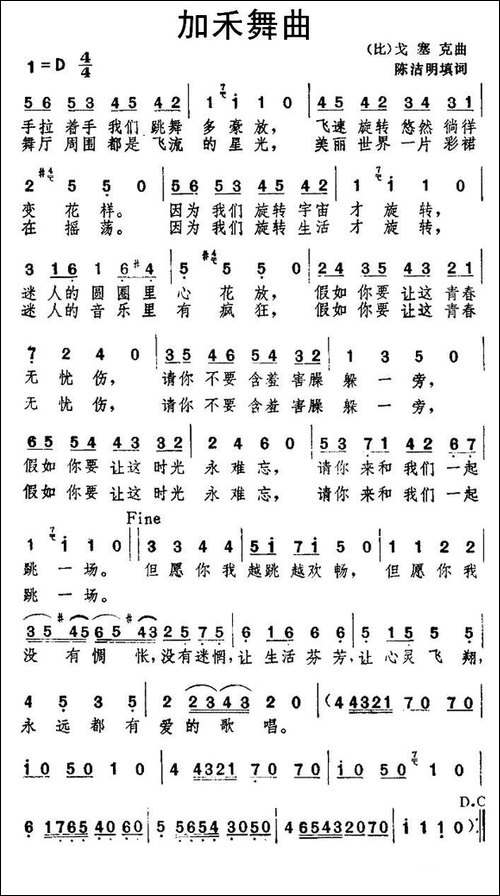 加禾舞曲
(比)戈塞克曲
1=D 4/4
陈洁明填词
56 53 45 42 | 1 i 1 0 | 45 42 34 31 |
手拉着手我们跳舞多豪放，飞速旋转悠然徜徉
舞厅周围都是飞流的星光，美丽世界一片彩裙
2 5 5 0 | 56 53 45 42 | 1 i 1 0 |
变花样。因为我们旋转宇宙才旋转，
在摇荡。因为我们旋转生活才旋转，
3 16 1 6#4 | 5 5 5 0 | 24 35 43 21 |
迷人的圆圈里心花放，假如你要让这青春
迷人的音乐里有疯狂，假如你要让这青春
7 2 4 0 | 35 46 54 32 | 1 3 5 0 |
无忧伤，请你不要含羞害臊躲一旁，
无忧伤，请你不要含羞害臊躲一旁，
65 54 43 32 | 2 4 6 0 | 53 71 42 67 |
假如你要让这时光永难忘，请你来和我们一起
假如你要让这时光永难忘，请你来和我们一起
Fine
1 i 1 0 || 3 3 4 4 | 5i 7i 5 0 | 1 1 2 2 |
跳一场。但愿你我越跳越欢畅，但愿你我
跳一场。
35 #45 65 #43 | 2 5 7 5 | 6 1 6 6 | 5 1 5 5 |
没有惆怅，没有迷惘，让生活芬芳，让心灵飞翔，
4 5 3 5 | 2 2343 2 0 | (4321 70 70 |
永远都有爱的歌唱。
i0 50 1 0 | 4 4321 70 70 | i0 50 i 0 |
D.C
6 1765 40 60 | 5 5654 3050 | 4 65432070 | i 1 1 0) :||